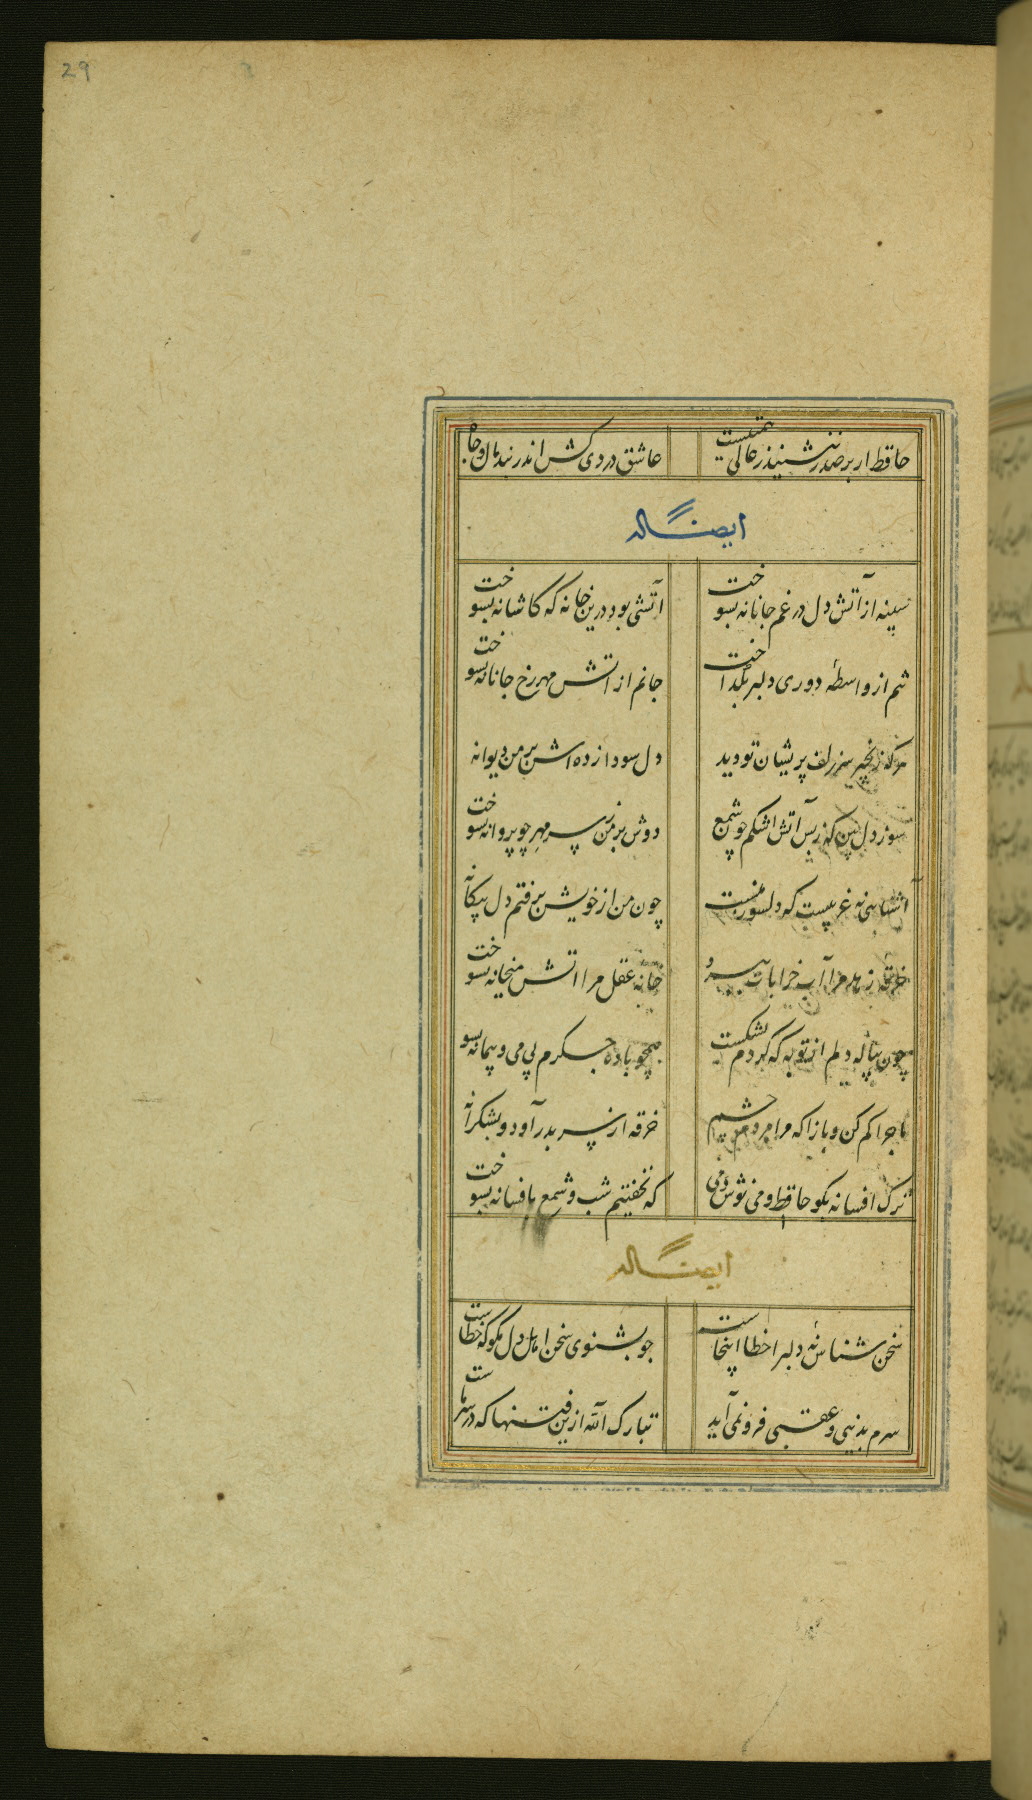 29
حافظ ار بر صدر ننشیند ز عالی همتیست عاشق دردی کش اندر بند مال و جاه
ایضاً له
سینه از آتش دل در غم جانانه بسوخت آتشی بود درین خانه که کاشانه بسوخت
تنم از واسطهٔ دوری دلبر بگداخت جانم از آتش مهر رخ جانانه بسوخت
هر که زنجیر سر زلف پریشان تو دید دل سودازده اش بر من دیوانه
سوز دل بین که ز بس آتش اشکم چو شمع دوش بر من ز سر مهر چو پروانه بسوخت
آشنایی نه غریبست که دلسوز منست چون من از خویش برفتم دل بیگانه
خرقهٔ زهد مرا آب خرابات ببرد خانهٔ عقل مرا آتش میخانه بسوخت
چون پیاله دلم از توبه که کردم بشکست همچو باده جگرم بی می و پیمانه بسو
ماجرا کم کن و بازا که مرا مردم چشم خرقه از سر بدر آورد و بشکرانه
ترک افسانه بگو حافظ و می نوش دمی که نخفتیم شب و شمع بافسانه بسوخت
ایضاً له
سخن شناس نهٔ دلبرا خطا اینجاست چو بشنوی سخن اهل دل مگو که خطاست
سرم بدنیی و عقبی فرو نمی آید تبارک الله ازین فتنها که در سر ماست